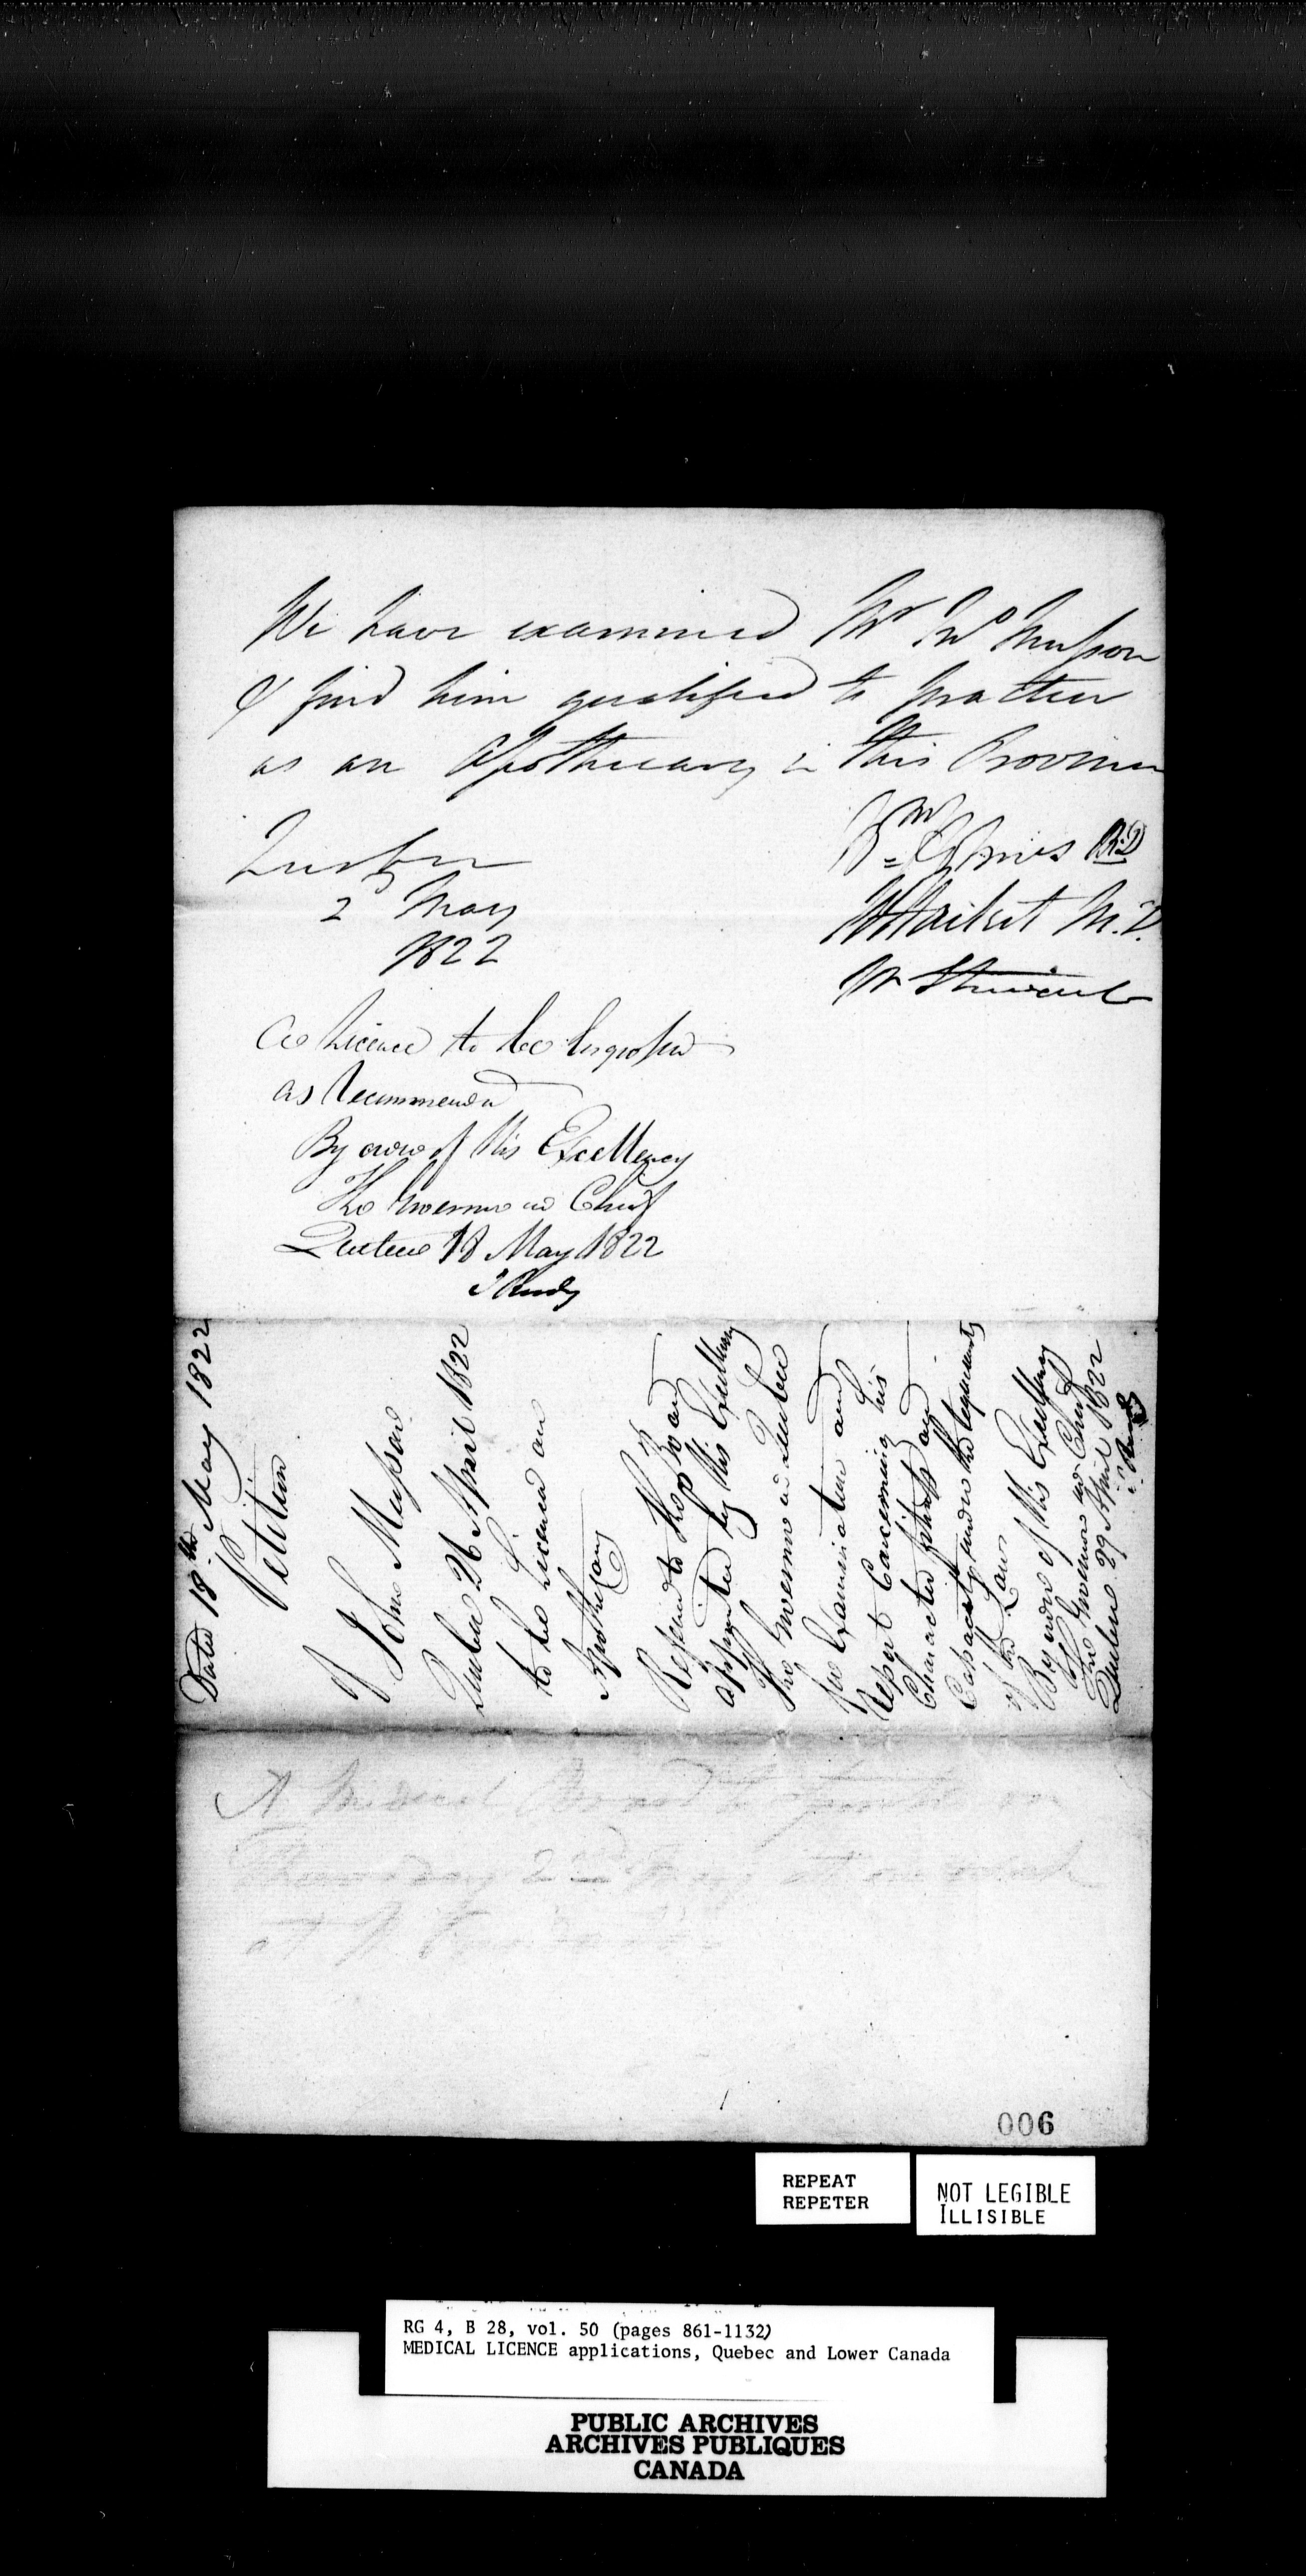 We have examined Mr Jno Musson
& find him qualified to practice
as an Apothecary in this Province
Quebec
2d May
1822
Wm
M.D.
W Hacket M.D.
A Licence to be Engrossed
as recommended
By order of His Excellency
The Governor in Chief
Quebec 18 May 1822
J Ready
Dated 18th May 1822
Petition
of John Musson
Quebec 26 April 1822
to be Licenced an
Apothecary
Referred to the Board
appointed by His Excellency
The Governor in Quebec
for Examination and
Report Concerning his
Character fitness and
Capacity under the requirements
of the Laws
By order of His Excellency
The Governor in Chief
Quebec 29 April 1822
J Ready
A Medical Board to on
Thursday 2nd May at
at
006
REPEAT
REPETER
NOT LEGIBLE
ILLISIBLE
RG 4, B 28, vol. 50 (pages 861-1132)
MEDICAL LICENCE applications, Quebec and Lower Canada
PUBLIC ARCHIVES
ARCHIVES PUBLIQUES
CANADA